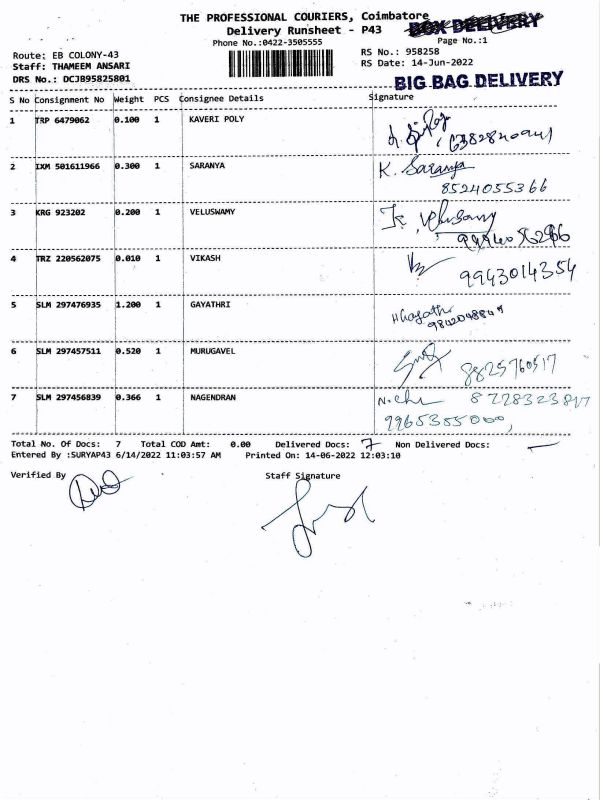 THE PROFESSIONAL COURIERS, Coimbatore
BOX DELIVERY
Delivery Runsheet - P43
Phone No.:0422-3505555
Page No.:1
Route: EB COLONY-43
RS No.: 958258
Staff: THAMEEM ANSARI
RS Date: 14-Jun-2022
DRS No.: DCJB95825801
BIG BAG DELIVERY
S No Consignment No Weight PCS Consignee Details Signature
1 TRP 6479062 0.100 1 KAVERI POLY
2 IXM 501611966 0.300 1 SARANYA K. Saranya
8524055366
3 KRG 923202 0.200 1 VELUSWAMY
4 TRZ 220562075 0.010 1 VIKASH 9943014354
5 SLM 297476935 1.200 1 GAYATHRI
6 SLM 297457511 0.520 1 MURUGAVEL 8825760517
7 SLM 297456839 0.366 1 NAGENDRAN
Total No. Of Docs: 7 Total COD Amt: 0.00 Delivered Docs: 7 Non Delivered Docs: —
Entered By :SURYAP43 6/14/2022 11:03:57 AM Printed On: 14-06-2022 12:03:10
Verified By Staff Signature